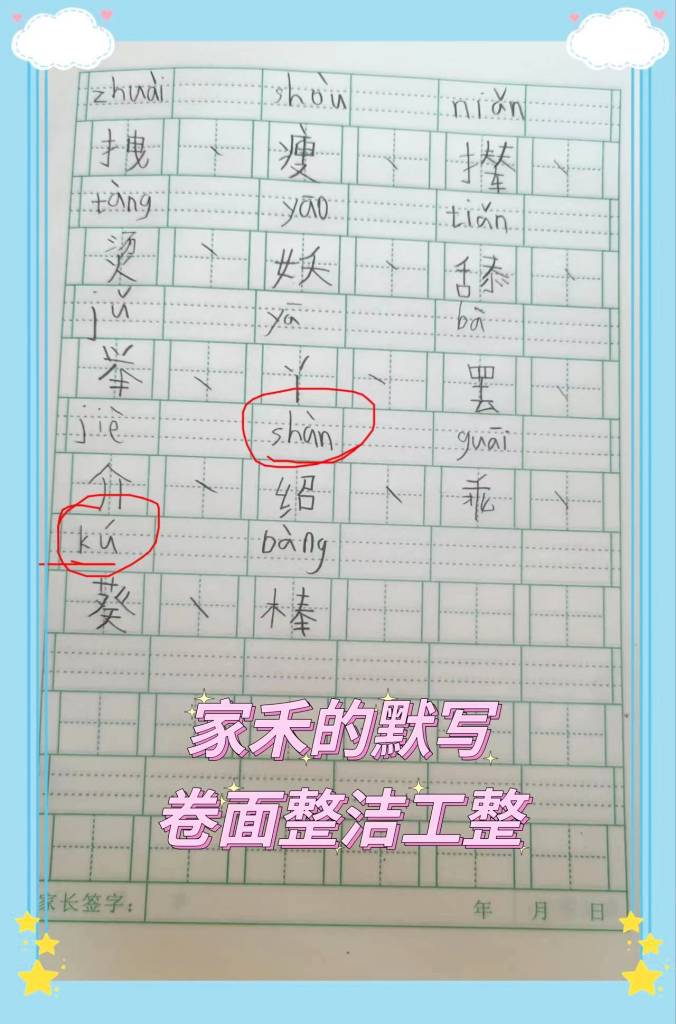 zhuài shòu niǎn
拽、瘦、撵、
tàng yāo tiǎn
烫、妖、舔、
jǔ yā bà
举、丫、罢、
jiè shàn guāi
介、绍、乖、
kú bàng
葵、棒
家禾的默写
卷面整洁工整
家长签字： 年 月 日